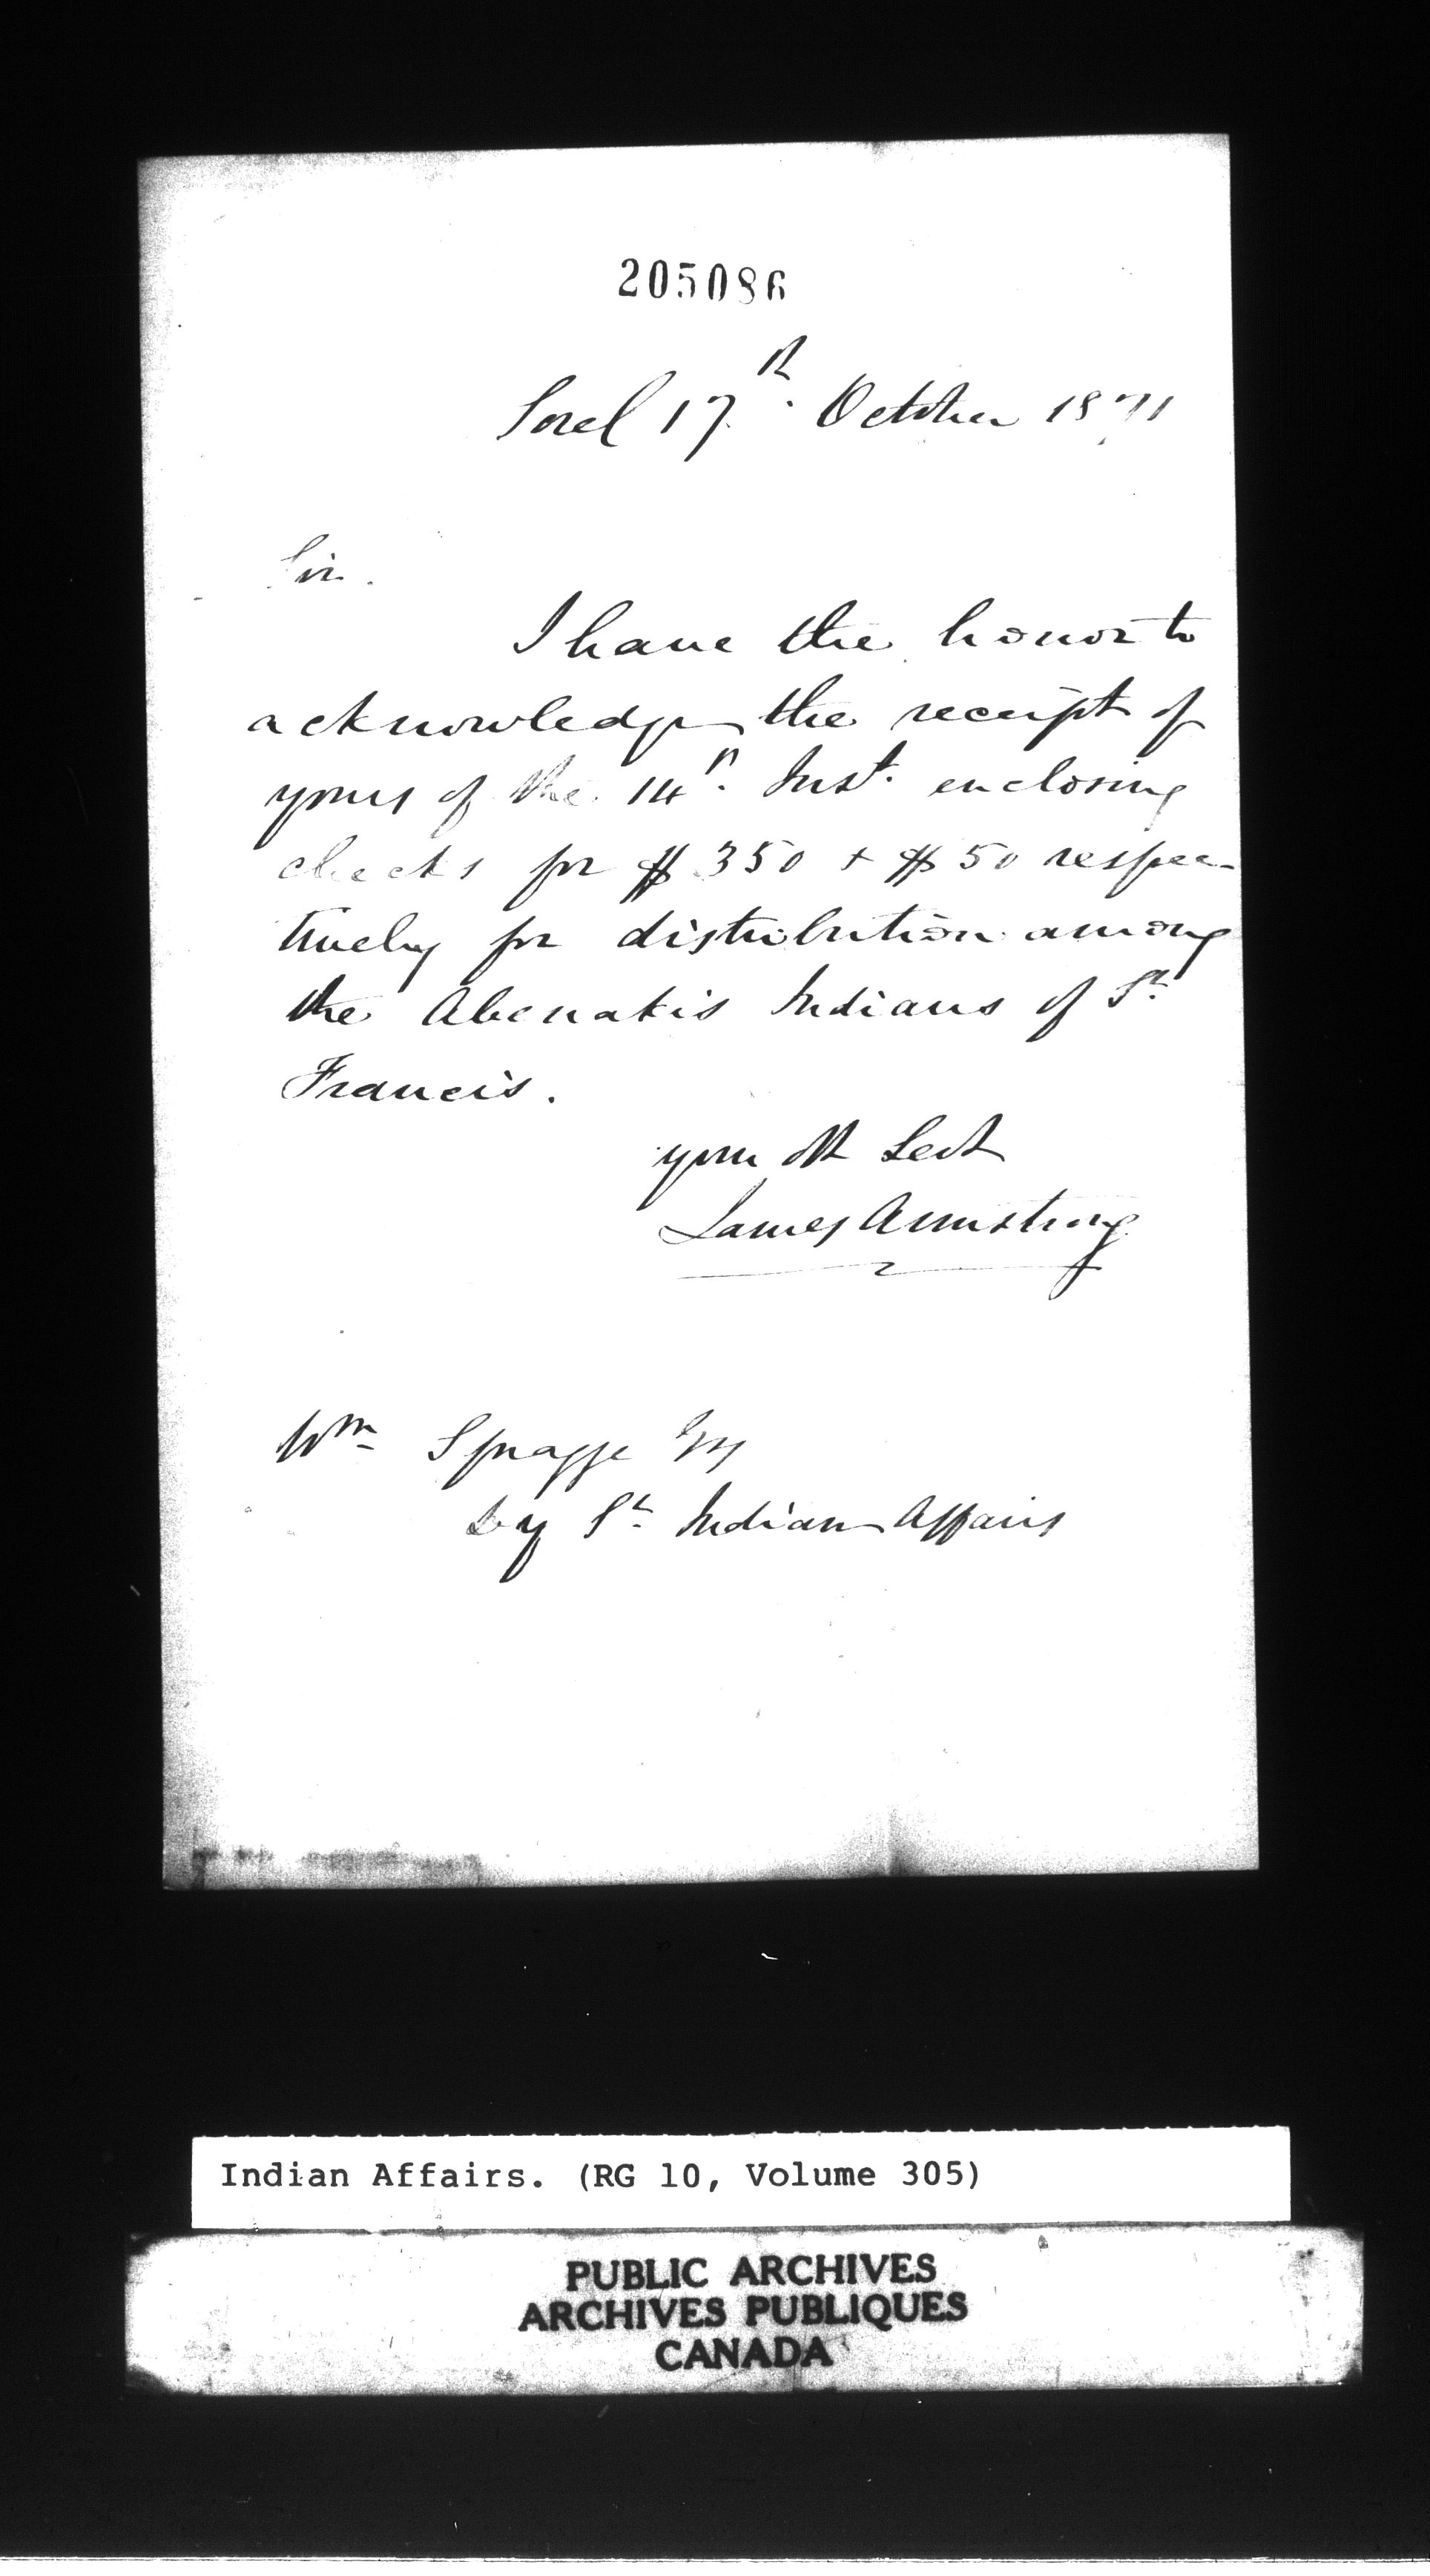 205086
Sorel 17th. October 1871
Sir.
I have the honor to
acknowledge the receipt of
yours of the 14th. Inst. enclosing
checks for $350 + $50 respec-
tively for distribution among
the Abenakis Indians of St
Francis.
your Ob Sevt
James Armstrong
Wm Spragge Esq
Dy St. Indian Affairs
Indian Affairs. (RG 10, Volume 305)
PUBLIC ARCHIVES
ARCHIVES PUBLIQUES
CANADA